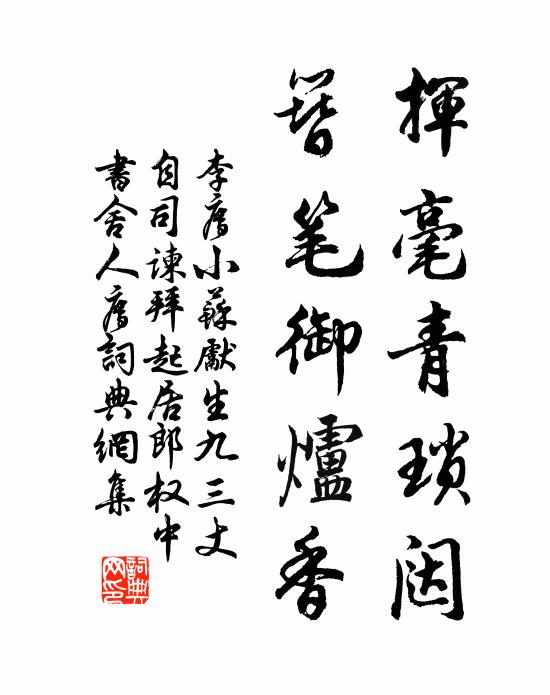 揮毫青瑣闼
簪笔御爐香
李廌小蘇獻生九三丈
自司諫拜起居郎权中
書舍人廌詞典網集
詞典网印